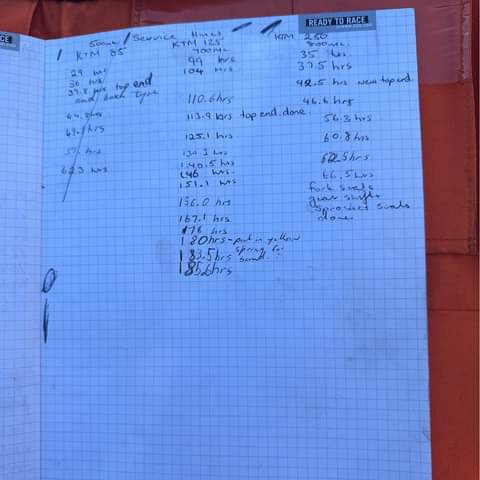 READY TO RACE
500ml / Service Hours
KTM 85
KTM 125
700ML
KTM 250
800ML
29 hrs
36 hrs
37.5 hrs top end
and back tyre
64.8 hrs
69.1 hrs
hrs
62.3 hrs
99 hrs
104 hrs
110.6 hrs
113.9 hrs top end done.
125.1 hrs
134.3 hrs
140.5 hrs
146 hrs.
151.1 hrs
156.0 hrs
167.1 hrs
176 hrs
180hrs - put in yellow
spring for
183.5hrs
185.6hrs
35 hrs
37.5 hrs
42.5 hrs new top end
46.4 hrs
56.3 hrs
60.8 hrs
62.5hrs
66.5 hrs
fork seals
gear shift
sprocket seals
done